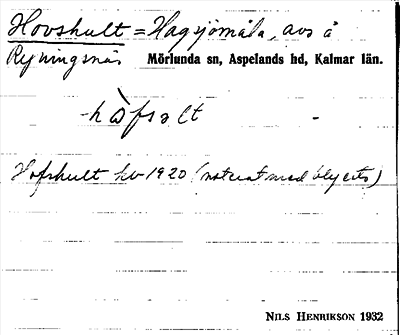 Hovshult = Hagsjömåla, avs å
Ryningsnäs Mörlunda sn, Aspelands hd, Kalmar län.
-håfsølt
Hofshult kb 1920 (noterat med blyerts)
NILS HENRIKSON 1932